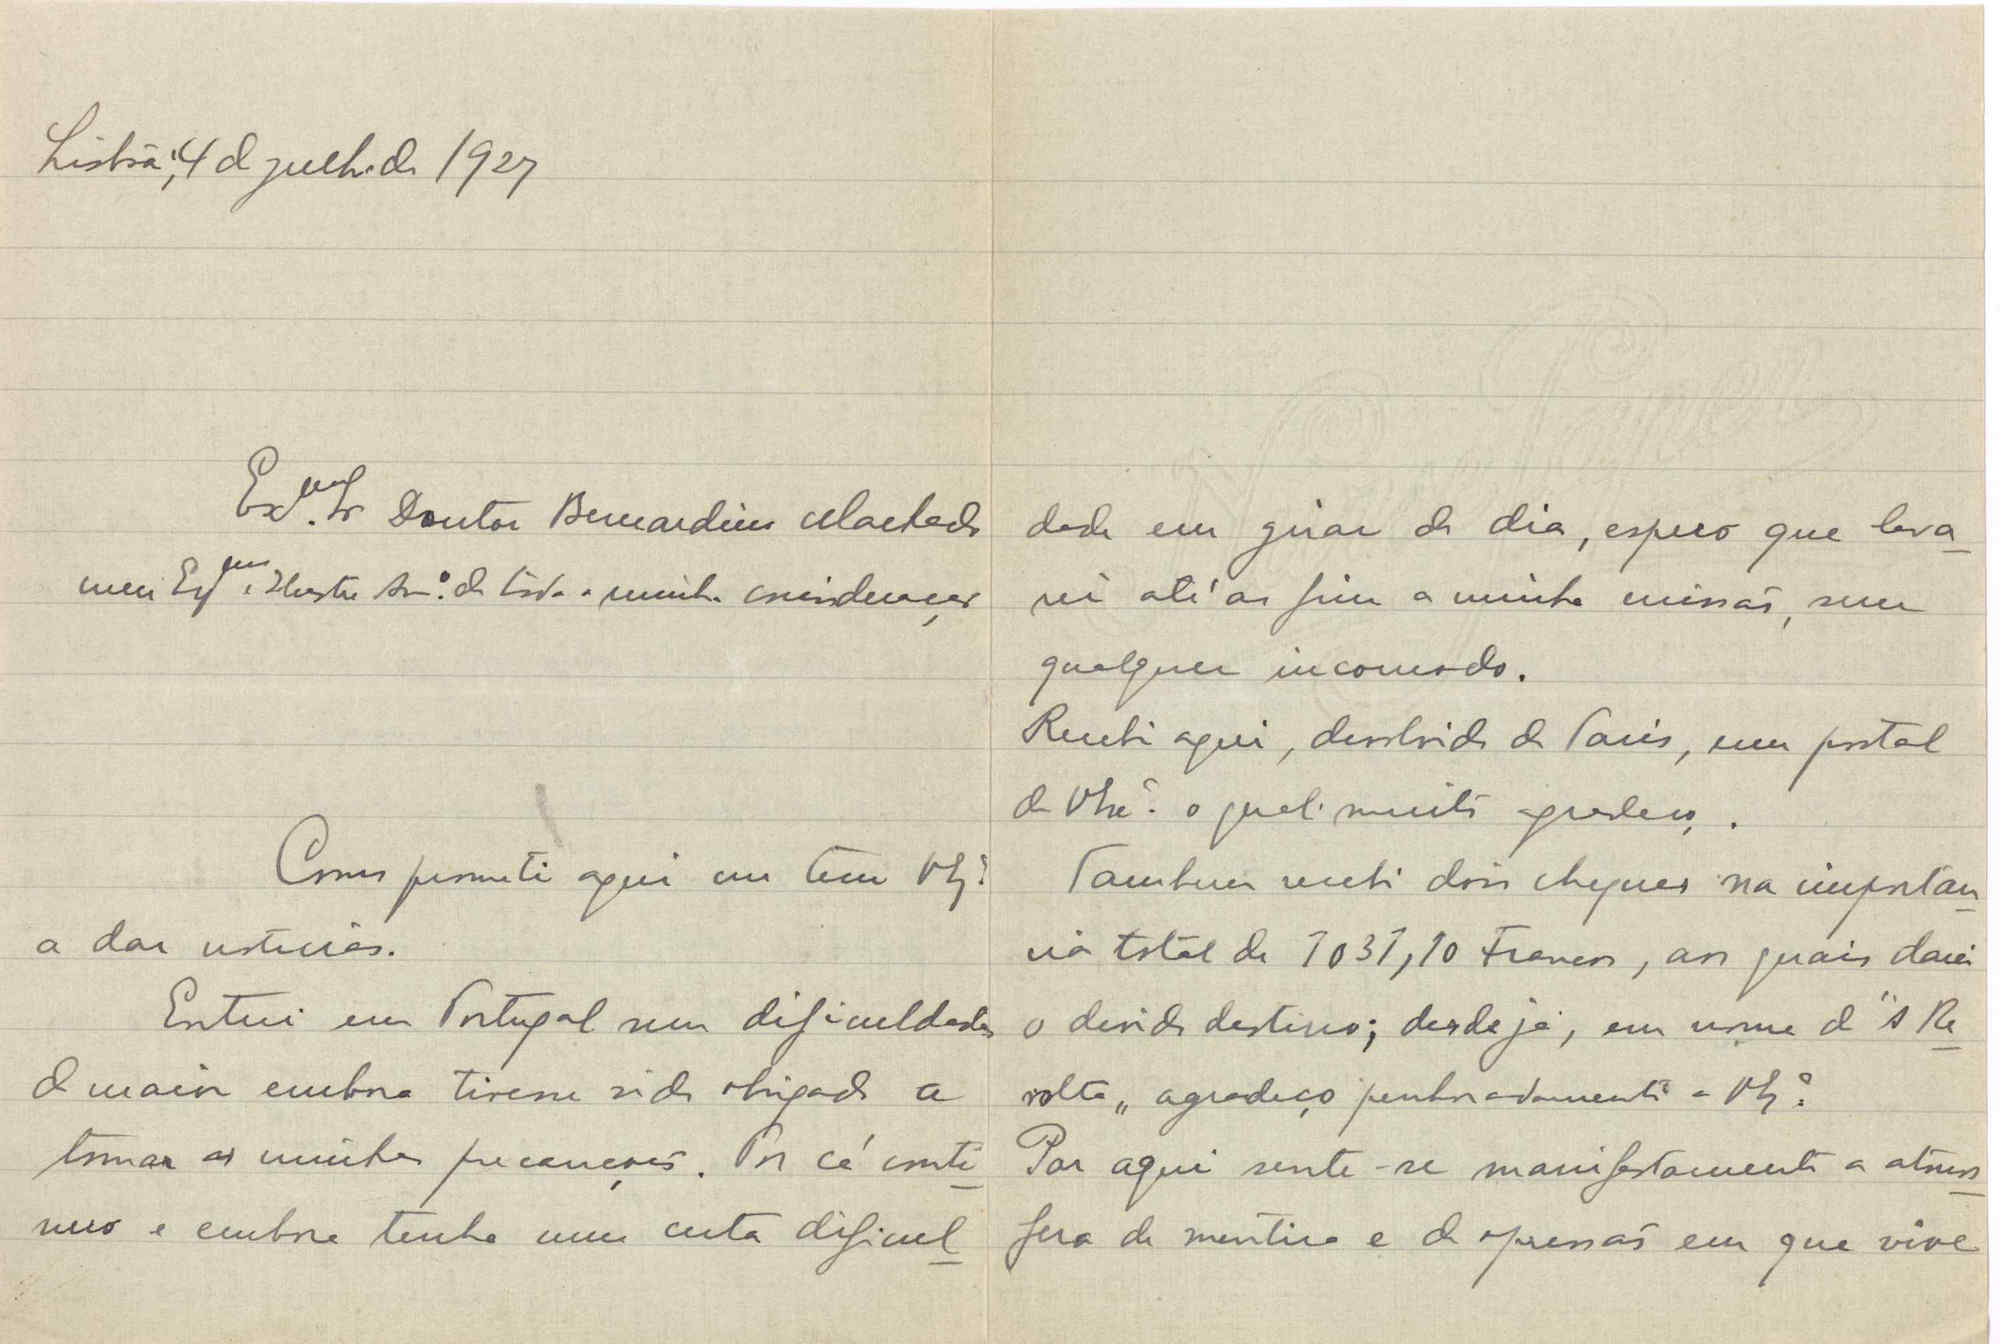 Lisbôa, 4 de julho de 1927
Ex.mo Sr Doutor Bernardino Machado
meu Exmo e Ilustre Am.º de toda a minha consideração
Como prometi aqui me tem V. Ex.ª
a dar noticias.
Entrei em Portugal sem dificuldades
de maior embora tivesse sido obrigado a
tomar as minhas precauções. Por cá conti
nuo e embora tenha uma certa dificul
dade em girar de dia, espero que leva
rei até ao fim a minha missão, sem
qualquer incomodo.
Recebi aqui, devolvido de Paris, um postal
de V. Ex.ª o qual muito agradeço.
Tambem recebi dois cheques na importan
cia total de 1031,10 Francos, aos quais darei
o devido destino; desde já, em nome d "A Re
volta„ agradeço penhoradamente a V. Ex.ª
Por aqui sente-se manifestamente a atmos
fera de mentira e de opressão em que vive